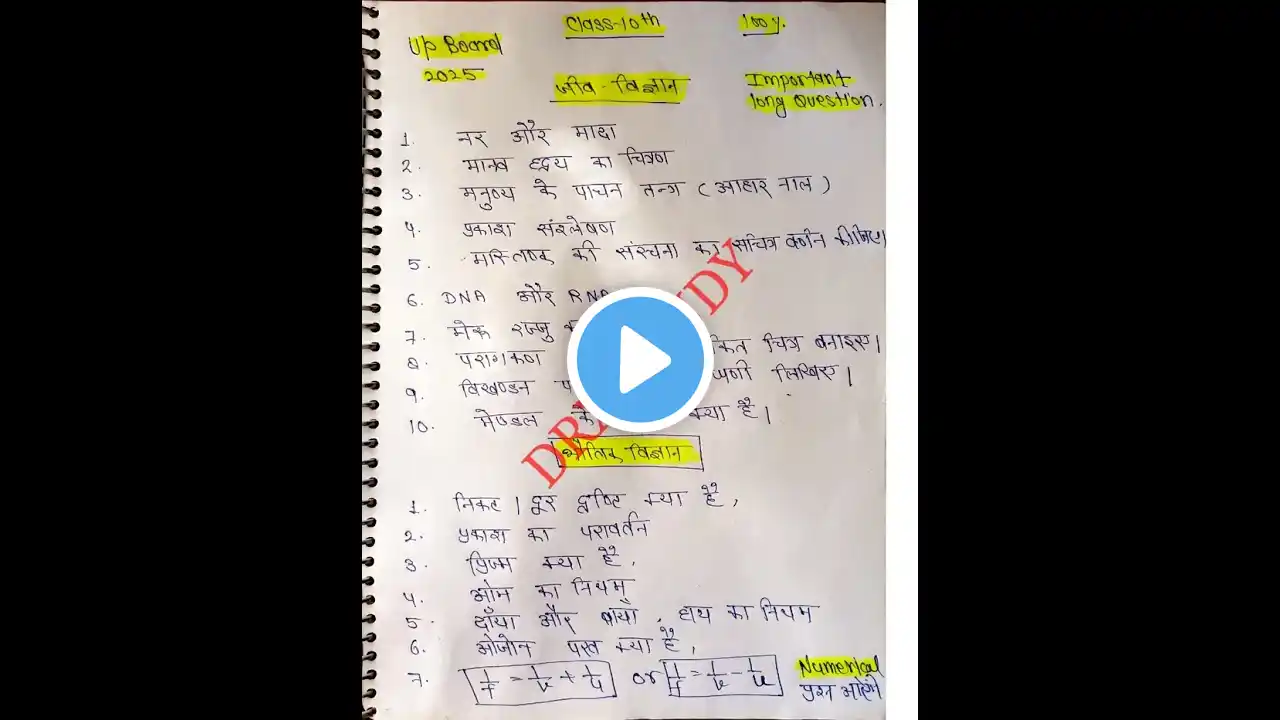 Class-10th
100%.
Up Board
2025
जीव-विज्ञान
Important
long Question.
1. नर और मादा
2. मानव हृदय का चित्रण
3. मनुष्य के पाचन तन्त्र (आहार नाल)
4. प्रकाश संश्लेषण
5. मस्तिष्क की संरचना का सचित्र वर्णन कीजिए।
6. DNA और RNA
7. मेरू रज्जु
8. परागकण चित्र बनाइए।
9. विखण्डन लिखिए।
10. मेण्डल के क्या है।
भौतिक विज्ञान
1. निकट । दूर दृष्टि क्या है,
2. प्रकाश का परावर्तन
3. प्रिज्म क्या है,
4. ओम का नियम
5. दाँया और बायाँ, हाथ का नियम
6. ओजोन परत क्या है,
7. 1/f = 1/v + 1/u or 1/f = 1/v - 1/u
Numerical
प्रश्न आयेंगे